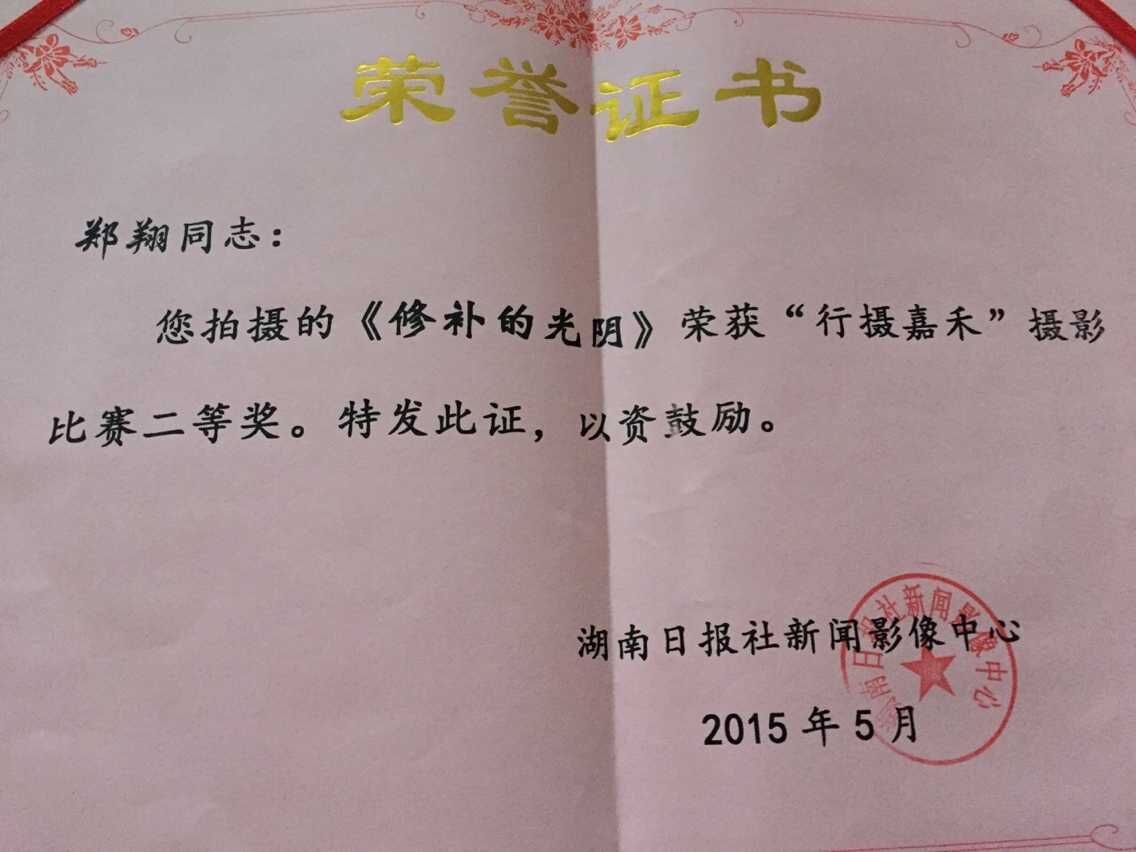 荣誉证书
郑翔同志：
您拍摄的《修补的光阴》荣获“行摄嘉禾”摄影
比赛二等奖。特发此证，以资鼓励。
湖南日报社新闻影像中心
2015年5月
湖南日报社新闻影像中心